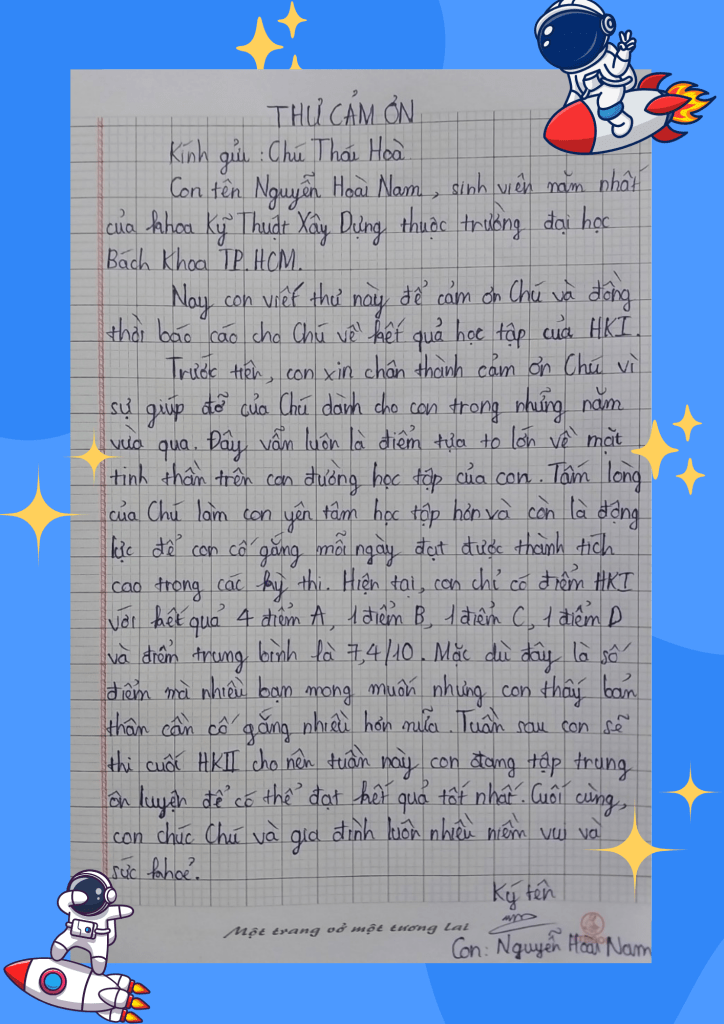 THƯ CẢM ƠN
Kính gửi : Chú Thái Hoà
Con tên Nguyễn Hoài Nam, sinh viên năm nhất
của khoa Kỹ Thuật Xây Dựng thuộc trường đại học
Bách Khoa TP.HCM.
Nay con viết thư này để cảm ơn Chú và đồng
thời báo cáo cho Chú về kết quả học tập của HKI.
Trước tiên, con xin chân thành cảm ơn Chú vì
sự giúp đỡ của Chú dành cho con trong những năm
vừa qua. Đây vẫn luôn là điểm tựa to lớn về mặt
tinh thần trên con đường học tập của con. Tấm lòng
của Chú làm con yên tâm học tập hơn và còn là động
lực để con cố gắng mỗi ngày đạt được thành tích
cao trong các kỳ thi. Hiện tại, con chỉ có điểm HKI
với kết quả 4 điểm A, 1 điểm B, 1 điểm C, 1 điểm D
và điểm trung bình là 7,4/10. Mặc dù đây là số
điểm mà nhiều bạn mong muốn nhưng con thấy bản
thân cần cố gắng nhiều hơn nữa. Tuần sau con sẽ
thi cuối HKII cho nên tuần này con đang tập trung
ôn luyện để có thể đạt kết quả tốt nhất. Cuối cùng,
con chúc Chú và gia đình luôn nhiều niềm vui và
sức khoẻ.
Ký tên
Một trang vở một tương lai
Con: Nguyễn Hoài Nam